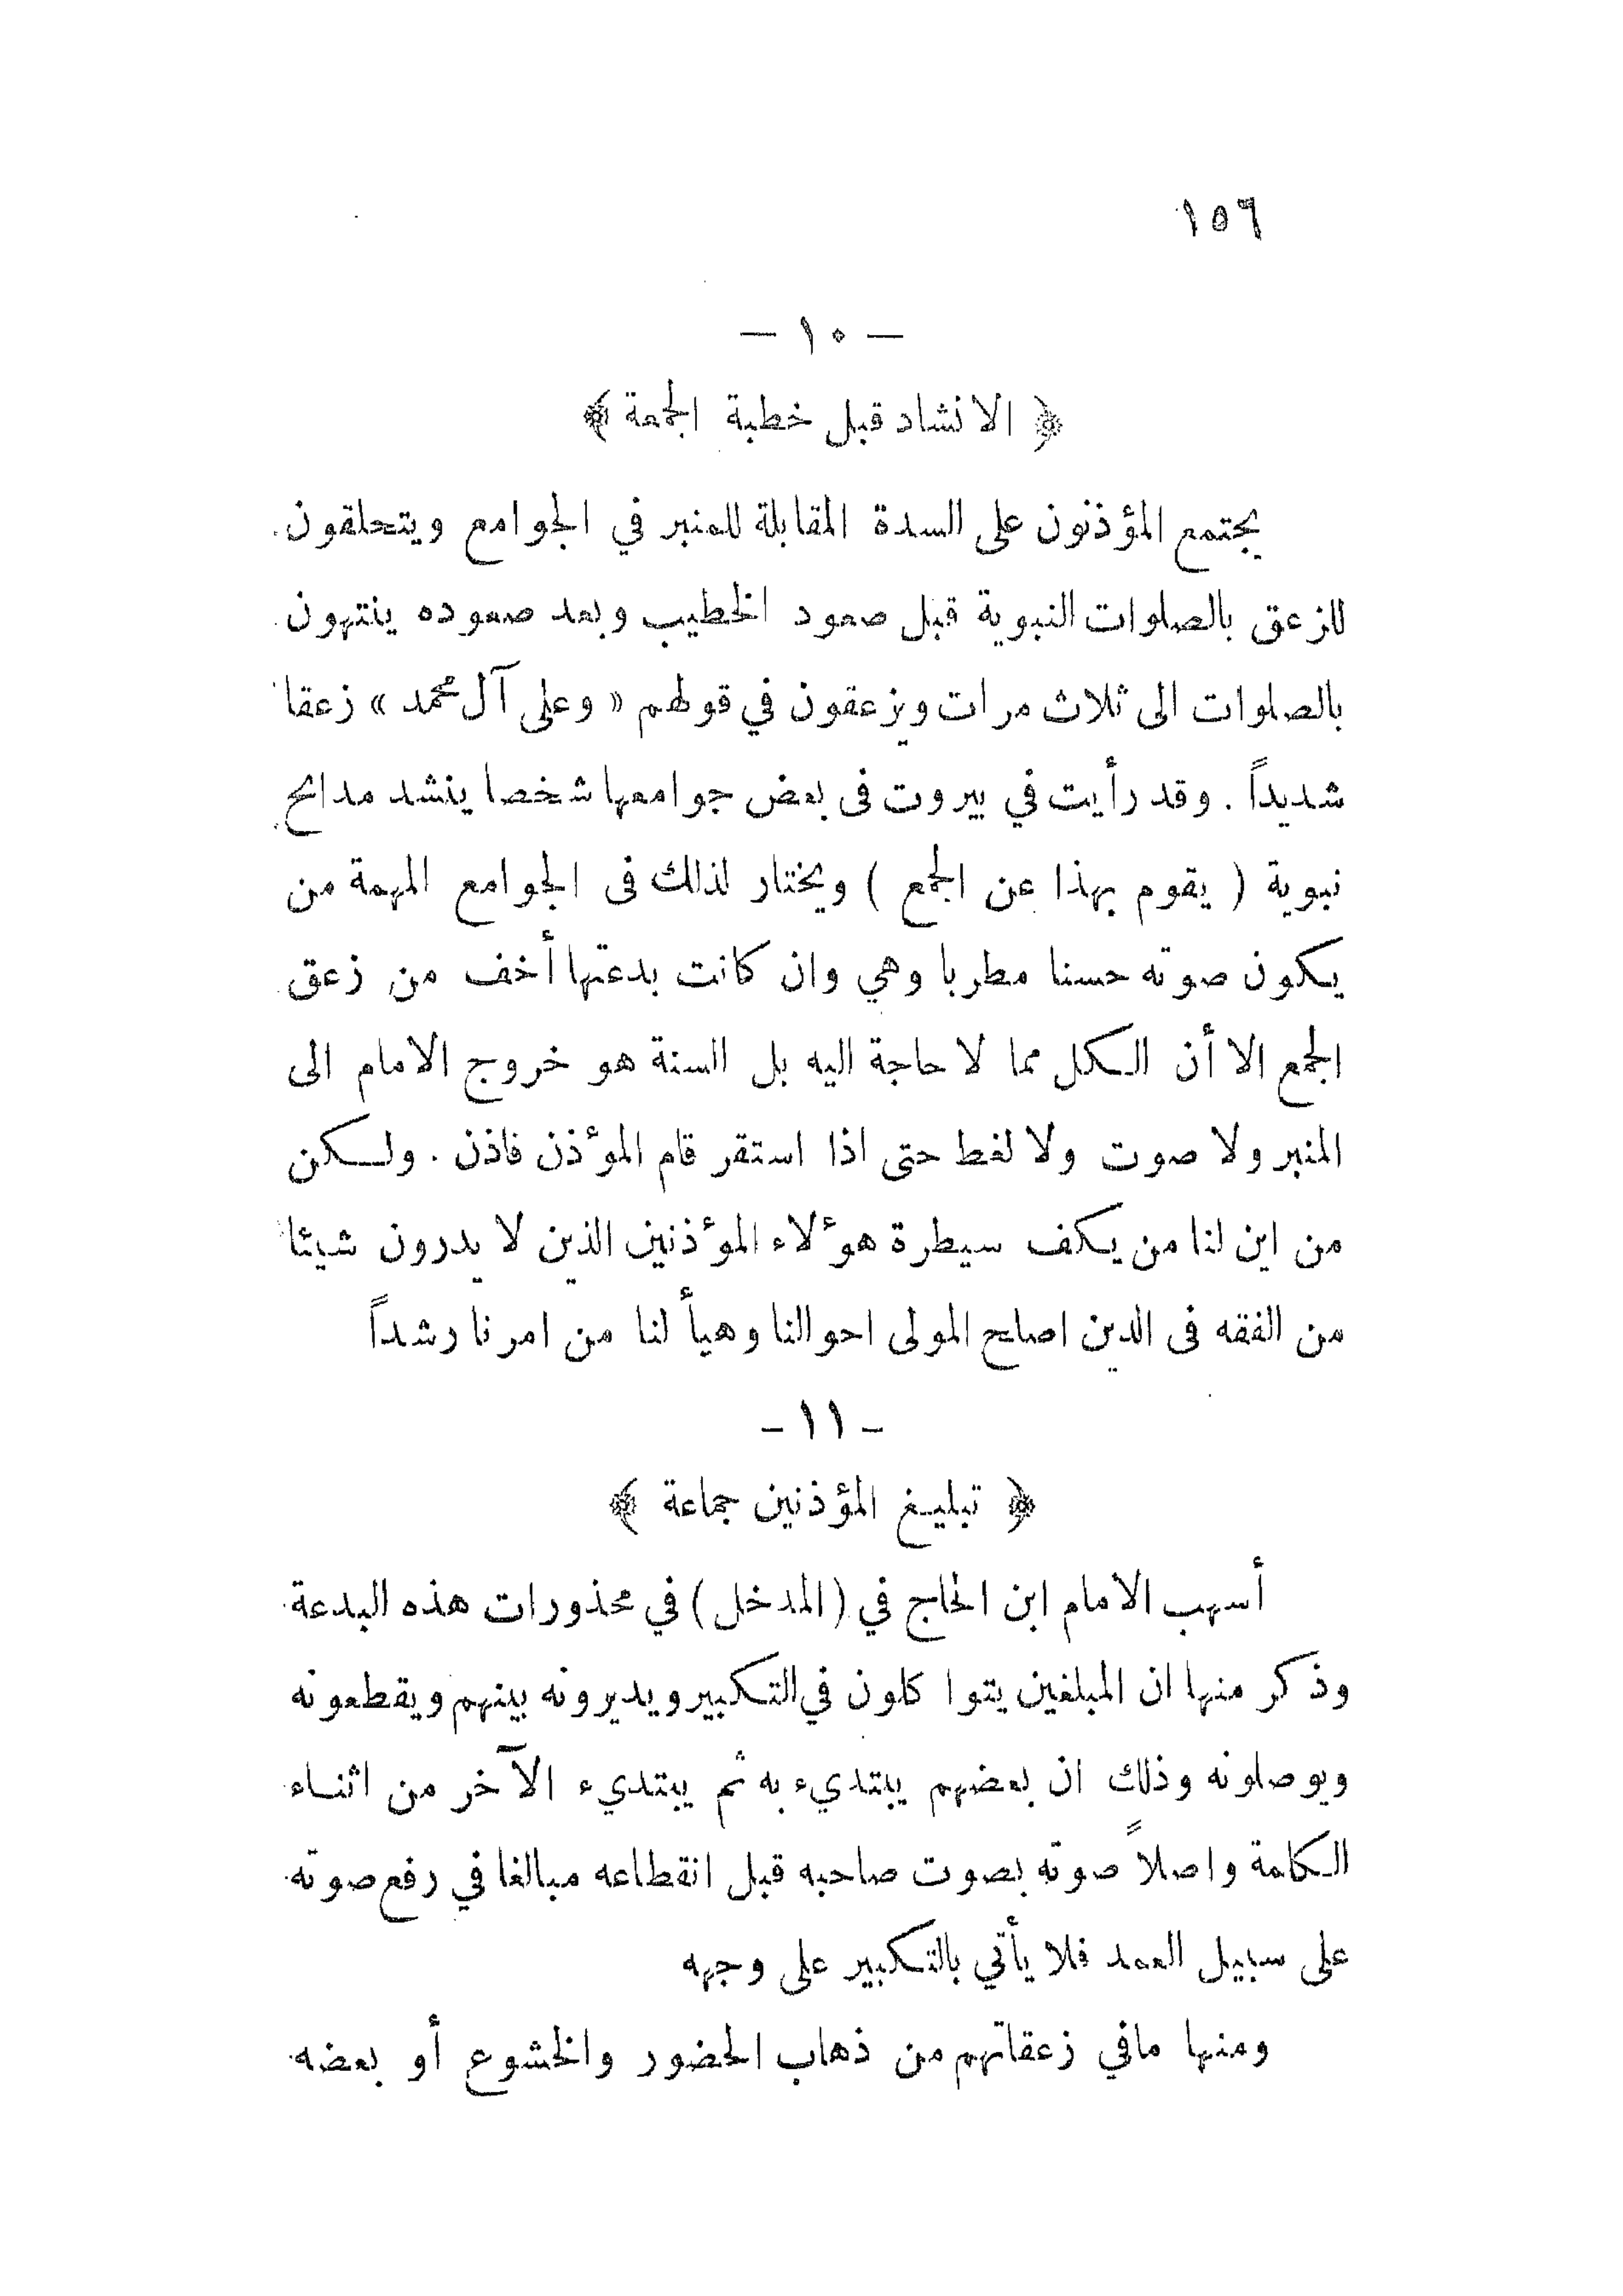 ١٥٦
— ١٠ —
﴿ الانشاد قبل خطبة الجمعة ﴾
يجتمع المؤذنون على السدة المقابلة للمنبر في الجوامع ويتحلقون
للزعق بالصلوات النبوية قبل صعود الخطيب وبعد صعوده ينتهون
بالصلوات الى ثلاث مرات ويزعقون في قولهم « وعلى آل محمد » زعقا
شديداً . وقد رأيت في بيروت فى بعض جوامعها شخصا ينشد مدائح
نبوية ( يقوم بهذا عن الجمع ) ويختار لذلك فى الجوامع المهمة من
يكون صوته حسنا مطربا وهي وان كانت بدعتها أخف من زعق
الجمع الا أن الكل مما لا حاجة اليه بل السنة هو خروج الامام الى
المنبر ولا صوت ولا لغط حتى اذا استقر قام المؤذن فاذن . ولكن
من اين لنا من يكف سيطرة هؤلاء المؤذنين الذين لا يدرون شيئا
من الفقه فى الدين اصلح المولى احوالنا وهيأ لنا من امرنا رشداً
- ١١ -
﴿ تبليغ المؤذنين جماعة ﴾
أسهب الامام ابن الحاج في ( المدخل ) في محذورات هذه البدعة
وذكر منها ان المبلغين يتوا كلون في التكبير ويديرونه بينهم ويقطعونه
ويوصلونه وذلك ان بعضهم يبتديء به ثم يبتديء الآخر من اثناء
الكلمة واصلاً صوته بصوت صاحبه قبل انقطاعه مبالغا في رفع صوته
على سبيل العمد فلا يأتي بالتكبير على وجهه
ومنها مافي زعقاتهم من ذهاب الحضور والخشوع أو بعضه